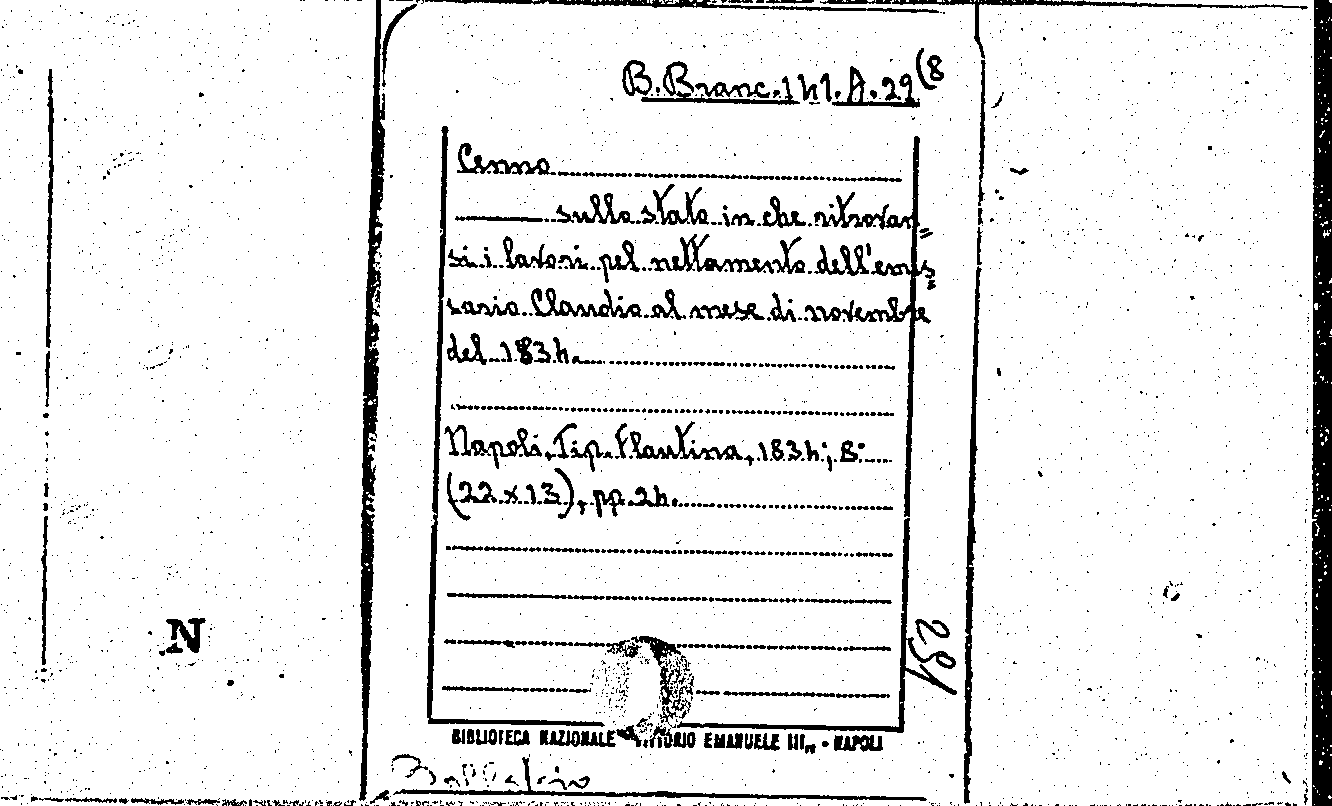 B. Branc. 141. A. 29(8
Cenno
sullo stato in che ritrovan=
si i lavori pel nettamento dell'emis=
sario Claudio al mese di novembre
del 1834.
Napoli, Tip. Flautina, 1834; 8°
(22 x 13), pp. 24.
N
BIBLIOTECA NAZIONALE VITTORIO EMANUELE III - NAPOLI